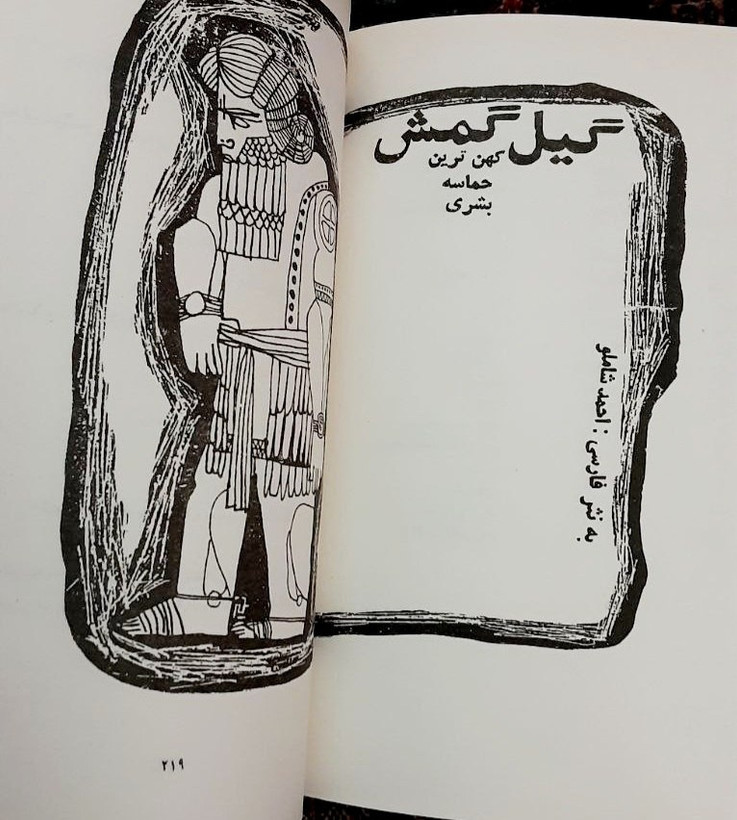 گیل گمش
کهن ترین
حماسه
بشری
به نثر فارسی : احمد شاملو
۲۱۹